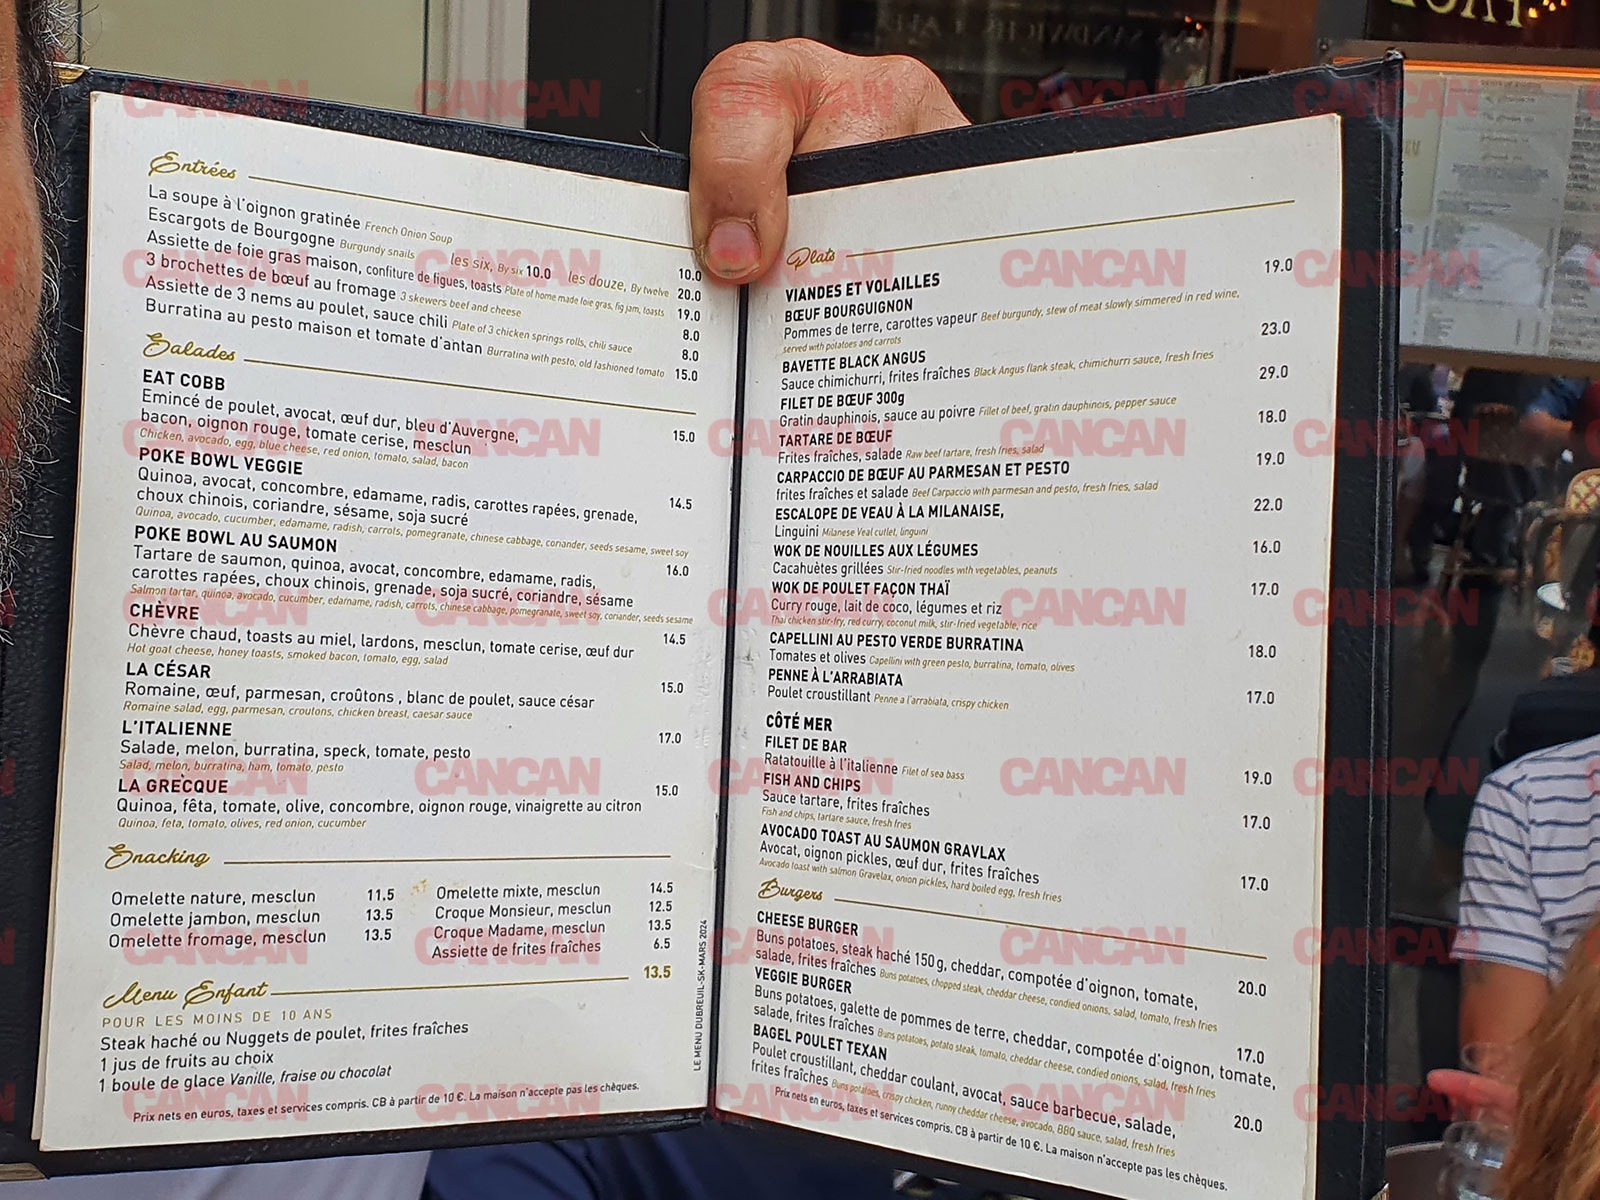 Entrées
La soupe à l'oignon gratinée French Onion Soup 10.0
Escargots de Bourgogne Burgundy snails les six, By six 10.0 les douze, By twelve 20.0
Assiette de foie gras maison, confiture de figues, toasts Plate of home made foie gras, fig jam, toasts 19.0
3 brochettes de bœuf au fromage 3 skewers beef and cheese 8.0
Assiette de 3 nems au poulet, sauce chili Plate of 3 chicken springs rolls, chili sauce 8.0
Burratina au pesto maison et tomate d'antan Burratina with pesto, old fashioned tomato 15.0
Salades
EAT COBB
Emincé de poulet, avocat, œuf dur, bleu d'Auvergne,
bacon, oignon rouge, tomate cerise, mesclun 15.0
Chicken, avocado, egg, blue cheese, red onion, tomato, salad, bacon
POKE BOWL VEGGIE
Quinoa, avocat, concombre, edamame, radis, carottes rapées, grenade, 14.5
choux chinois, coriandre, sésame, soja sucré
Quinoa, avocado, cucumber, edamame, radish, carrots, pomegranate, chinese cabbage, coriander, seeds sesame, sweet soy
POKE BOWL AU SAUMON
Tartare de saumon, quinoa, avocat, concombre, edamame, radis, 16.0
carottes rapées, choux chinois, grenade, soja sucré, coriandre, sésame
Salmon tartar, quinoa, avocado, cucumber, edamame, radish, carrots, chinese cabbage, pomegranate, sweet soy, coriander, seeds sesame
CHÈVRE
Chèvre chaud, toasts au miel, lardons, mesclun, tomate cerise, œuf dur 14.5
Hot goat cheese, honey toasts, smoked bacon, tomato, egg, salad
LA CÉSAR
Romaine, œuf, parmesan, croûtons , blanc de poulet, sauce césar 15.0
Romaine salad, egg, parmesan, croutons, chicken breast, caesar sauce
L'ITALIENNE
Salade, melon, burratina, speck, tomate, pesto 17.0
Salad, melon, burratina, ham, tomato, pesto
LA GRECQUE
Quinoa, fêta, tomate, olive, concombre, oignon rouge, vinaigrette au citron 15.0
Quinoa, feta, tomato, olives, red onion, cucumber
Snacking
Omelette nature, mesclun 11.5
Omelette jambon, mesclun 13.5
Omelette fromage, mesclun 13.5
Omelette mixte, mesclun 14.5
Croque Monsieur, mesclun 12.5
Croque Madame, mesclun 13.5
Assiette de frites fraîches 6.5
Menu Enfant 13.5
POUR LES MOINS DE 10 ANS
Steak haché ou Nuggets de poulet, frites fraîches
1 jus de fruits au choix
1 boule de glace Vanille, fraise ou chocolat
Prix nets en euros, taxes et services compris. CB à partir de 10 €. La maison n'accepte pas les chèques.
LE MENU DUBREUIL-SK-MARS 2024
Plats
VIANDES ET VOLAILLES
BŒUF BOURGUIGNON 19.0
Pommes de terre, carottes vapeur Beef burgundy, stew of meat slowly simmered in red wine,
served with potatoes and carrots
BAVETTE BLACK ANGUS 23.0
Sauce chimichurri, frites fraîches Black Angus flank steak, chimichurri sauce, fresh fries
FILET DE BŒUF 300g 29.0
Gratin dauphinois, sauce au poivre Fillet of beef, gratin dauphinois, pepper sauce
TARTARE DE BŒUF 18.0
Frites fraîches, salade Raw beef tartare, fresh fries, salad
CARPACCIO DE BŒUF AU PARMESAN ET PESTO 19.0
frites fraîches et salade Beef Carpaccio with parmesan and pesto, fresh fries, salad
ESCALOPE DE VEAU À LA MILANAISE, 22.0
Linguini Milanese Veal cutlet, linguini
WOK DE NOUILLES AUX LÉGUMES 16.0
Cacahuètes grillées Stir-fried noodles with vegetables, peanuts
WOK DE POULET FAÇON THAÏ 17.0
Curry rouge, lait de coco, légumes et riz
Thai chicken stir-fry, red curry, coconut milk, stir-fried vegetable, rice
CAPELLINI AU PESTO VERDE BURRATINA 18.0
Tomates et olives Capellini with green pesto, burratina, tomato, olives
PENNE À L'ARRABIATA
Poulet croustillant Penne a l'arrabiata, crispy chicken 17.0
CÔTÉ MER
FILET DE BAR
Ratatouille à l'italienne Filet of sea bass 19.0
FISH AND CHIPS
Sauce tartare, frites fraîches 17.0
Fish and chips, tartare sauce, fresh fries
AVOCADO TOAST AU SAUMON GRAVLAX
Avocat, oignon pickles, œuf dur, frites fraîches 17.0
Avocado toast with salmon Gravelax, onion pickles, hard boiled egg, fresh fries
Burgers
CHEESE BURGER
Buns potatoes, steak haché 150 g, cheddar, compotée d'oignon, tomate, 20.0
salade, frites fraîches Buns potatoes, chopped steak, cheddar cheese, condied onions, salad, tomato, fresh fries
VEGGIE BURGER
Buns potatoes, galette de pommes de terre, cheddar, compotée d'oignon, tomate, 17.0
salade, frites fraîches Buns potatoes, potato steak, tomato, cheddar cheese, condied onions, salad, fresh fries
BAGEL POULET TEXAN
Poulet croustillant, cheddar coulant, avocat, sauce barbecue, salade, 20.0
frites fraîches Buns potatoes, crispy chicken, runny cheddar cheese, avocado, BBQ sauce, salad, fresh fries
Prix nets en euros, taxes et services compris. CB à partir de 10 €. La maison n'accepte pas les chèques.
CANCAN